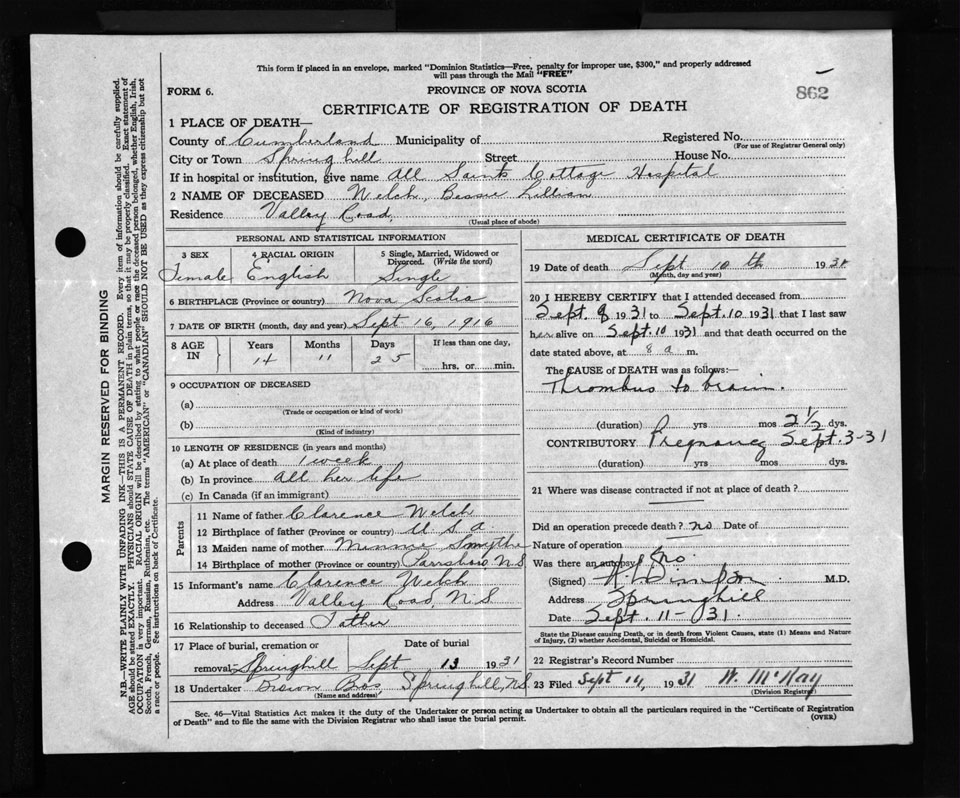 This form if placed in an envelope, marked "Dominion Statistics—Free, penalty for improper use, $300," and properly addressed
will pass through the Mail "FREE"
862
FORM 6.
PROVINCE OF NOVA SCOTIA
CERTIFICATE OF REGISTRATION OF DEATH
1 PLACE OF DEATH—
County of Cumberland Municipality of Registered No.
(For use of Registrar General only)
City or Town Springhill Street House No.
If in hospital or institution, give name All Saints Cottage Hospital
2 NAME OF DECEASED Welch, Bessie Lillian
Residence Valley Road
(Usual place of abode)
PERSONAL AND STATISTICAL INFORMATION
3 SEX 4 RACIAL ORIGIN 5 Single, Married, Widowed or
Divorced. (Write the word)
Female English Single
6 BIRTHPLACE (Province or country) Nova Scotia
7 DATE OF BIRTH (month, day and year) Sept 16, 1916
8 AGE IN Years Months Days If less than one day,
14 11 25 hrs. or min.
9 OCCUPATION OF DECEASED
(a)
(Trade or occupation or kind of work)
(b)
(Kind of industry)
10 LENGTH OF RESIDENCE (in years and months)
(a) At place of death 1 week
(b) In province all her life
(c) In Canada (if an immigrant)
Parents
11 Name of father Clarence Welch
12 Birthplace of father (Province or country) U S A.
13 Maiden name of mother Minnie Smythe
14 Birthplace of mother (Province or country) Parrsboro N.S
15 Informant's name Clarence Welch
Address Valley Road, N S
16 Relationship to deceased Father
17 Place of burial, cremation or Date of burial
removal Springhill Sept 13 1931
18 Undertaker Brown Bros, Springhill, N.S.
(Name and address)
MEDICAL CERTIFICATE OF DEATH
19 Date of death Sept 10 th 1931
(Month, day and year)
20 I HEREBY CERTIFY that I attended deceased from
Sept. 8 1931 to Sept. 10 1931 that I last saw
her alive on Sept. 10 1931 and that death occurred on the
date stated above, at 8 a m.
The CAUSE of DEATH was as follows:—
Thrombus to brain.
(duration) yrs mos 2 1/2 dys.
CONTRIBUTORY Pregnancy Sept. 3-31
(duration) yrs mos dys.
21 Where was disease contracted if not at place of death?
Did an operation precede death? no Date of
Nature of operation
Was there an autopsy? No.
(Signed) M.D.
Address Springhill
Date Sept. 11 - 31.
State the Disease causing Death, or in death from Violent Causes, state (1) Means and Nature
of Injury, (2) whether Accidental, Suicidal or Homicidal.
22 Registrar's Record Number
23 Filed Sept 14, 1931 W. McKay
(Division Registrar)
Sec. 46—Vital Statistics Act makes it the duty of the Undertaker or person acting as Undertaker to obtain all the particulars required in the "Certificate of Registration
of Death" and to file the same with the Division Registrar who shall issue the burial permit.
(OVER)
MARGIN RESERVED FOR BINDING
N.B.—WRITE PLAINLY WITH UNFADING INK—THIS IS A PERMANENT RECORD. Every item of information should be carefully supplied.
AGE should be stated EXACTLY. PHYSICIANS should STATE CAUSE OF DEATH in plain terms, so that it may be properly classified. Exact statement of
OCCUPATION is very important. RACIAL ORIGIN will be described by stating to what people or race the deceased person belonged, whether English, Irish,
Scotch, French, German, Russian, Ruthenian, etc. The terms "AMERICAN" or "CANADIAN" SHOULD NOT BE USED as they express citizenship but not
a race or people. See instructions on back of Certificate.